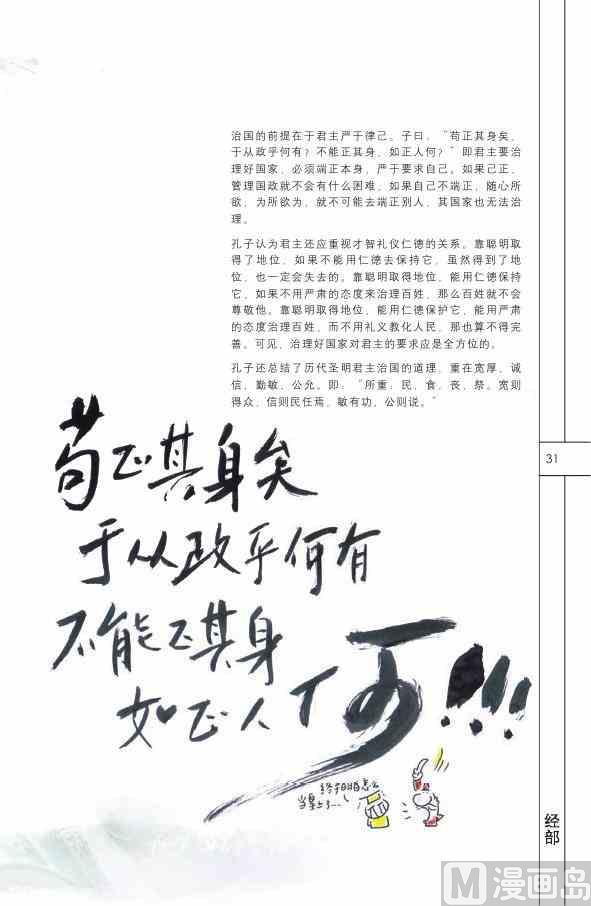 治国的前提在于君主严于律己。子曰，“苟正其身矣，
于从政乎何有？不能正其身，如正人何？”即君主要治
理好国家，必须端正本身，严于要求自己。如果己正，
管理国政就不会有什么困难，如果自己不端正，随心所
欲，为所欲为，就不可能去端正别人，其国家也无法治
理。
孔子认为君主还应重视才智礼仪仁德的关系。靠聪明取
得了地位，如果不能用仁德去保持它，虽然得到了地
位，也一定会失去的。靠聪明取得地位，能用仁德保持
它，如果不用严肃的态度来治理百姓，那么百姓就不会
尊敬他。靠聪明取得地位，能用仁德保护它，能用严肃
的态度治理百姓，而不用礼义教化人民，那也算不得完
善。可见，治理好国家对君主的要求应是全方位的。
孔子还总结了历代圣明君主治国的道理，重在宽厚、诚
信、勤敏、公允。即：“所重，民、食、丧、祭。宽则
得众，信则民任焉，敏有功，公则说。”
苟正其身矣
于从政乎何有
不能正其身
如正人何!!!
31
经部
漫画岛